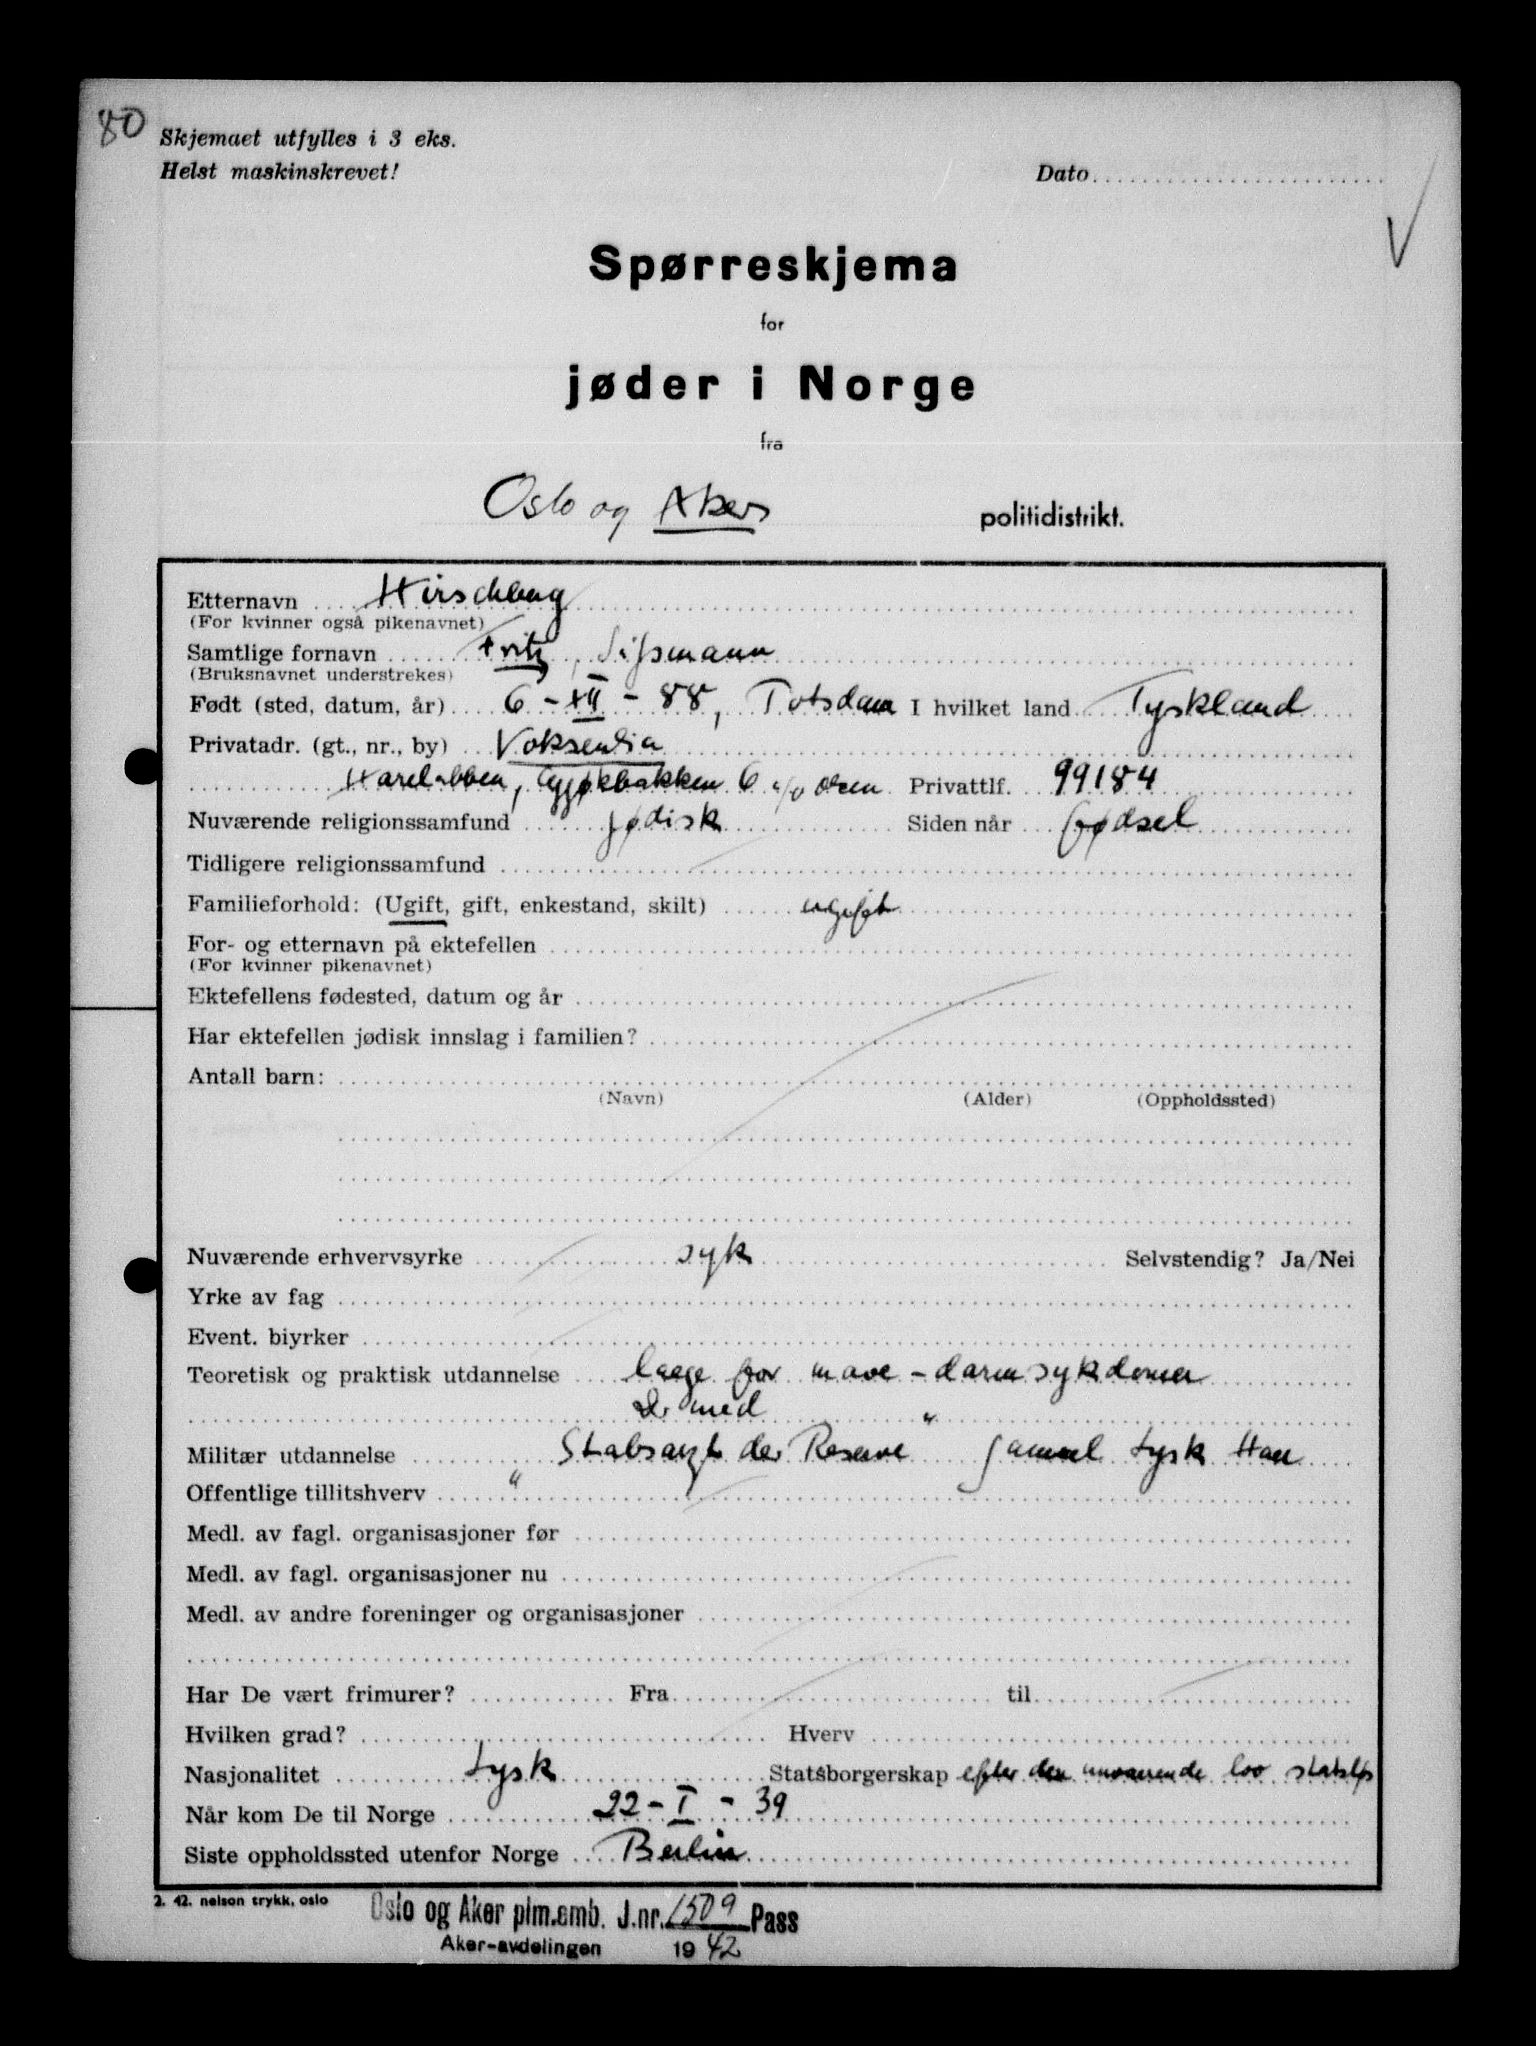 80
Skjemaet utfylles i 3 eks.
Helst maskinskrevet!
Dato
Spørreskjema
for
jøder i Norge
fra
Oslo og Akers politidistrikt.
Etternavn Hirschberg
(For kvinner også pikenavnet)
Samtlige fornavn Fritz, Süssmann
(Bruksnavnet understrekes)
Født (sted, datum, år) 6-XII-88, Potsdam I hvilket land Tyskland
Privatadr. (gt., nr., by) Voksenlia
Harelabben, 6 c/o Privattlf. 99184
Nuværende religionssamfund jødisk Siden når fødsel
Tidligere religionssamfund
Familieforhold: (Ugift, gift, enkestand, skilt) ugift
For- og etternavn på ektefellen
(For kvinner pikenavnet)
Ektefellens fødested, datum og år
Har ektefellen jødisk innslag i familien?
Antall barn:
(Navn) (Alder) (Oppholdssted)
Nuværende erhvervsyrke syk Selvstendig? Ja/Nei
Yrke av fag
Event. biyrker
Teoretisk og praktisk utdannelse laege for mave-darmsykdomer
Dr med
Militær utdannelse "Stabsarzt der Reserve" gammel tysk Haer
Offentlige tillitshverv
Medl. av fagl. organisasjoner før
Medl. av fagl. organisasjoner nu
Medl. av andre foreninger og organisasjoner
Har De vært frimurer? Fra til
Hvilken grad? Hverv
Nasjonalitet tysk Statsborgerskap efter den nuvaerende lov statsløs
Når kom De til Norge 22-I-39
Siste oppholdssted utenfor Norge Berlin
2. 42. nelson trykk, oslo
Oslo og Aker plm.emb. J.nr. 1509 Pass
Aker-avdelingen 1942